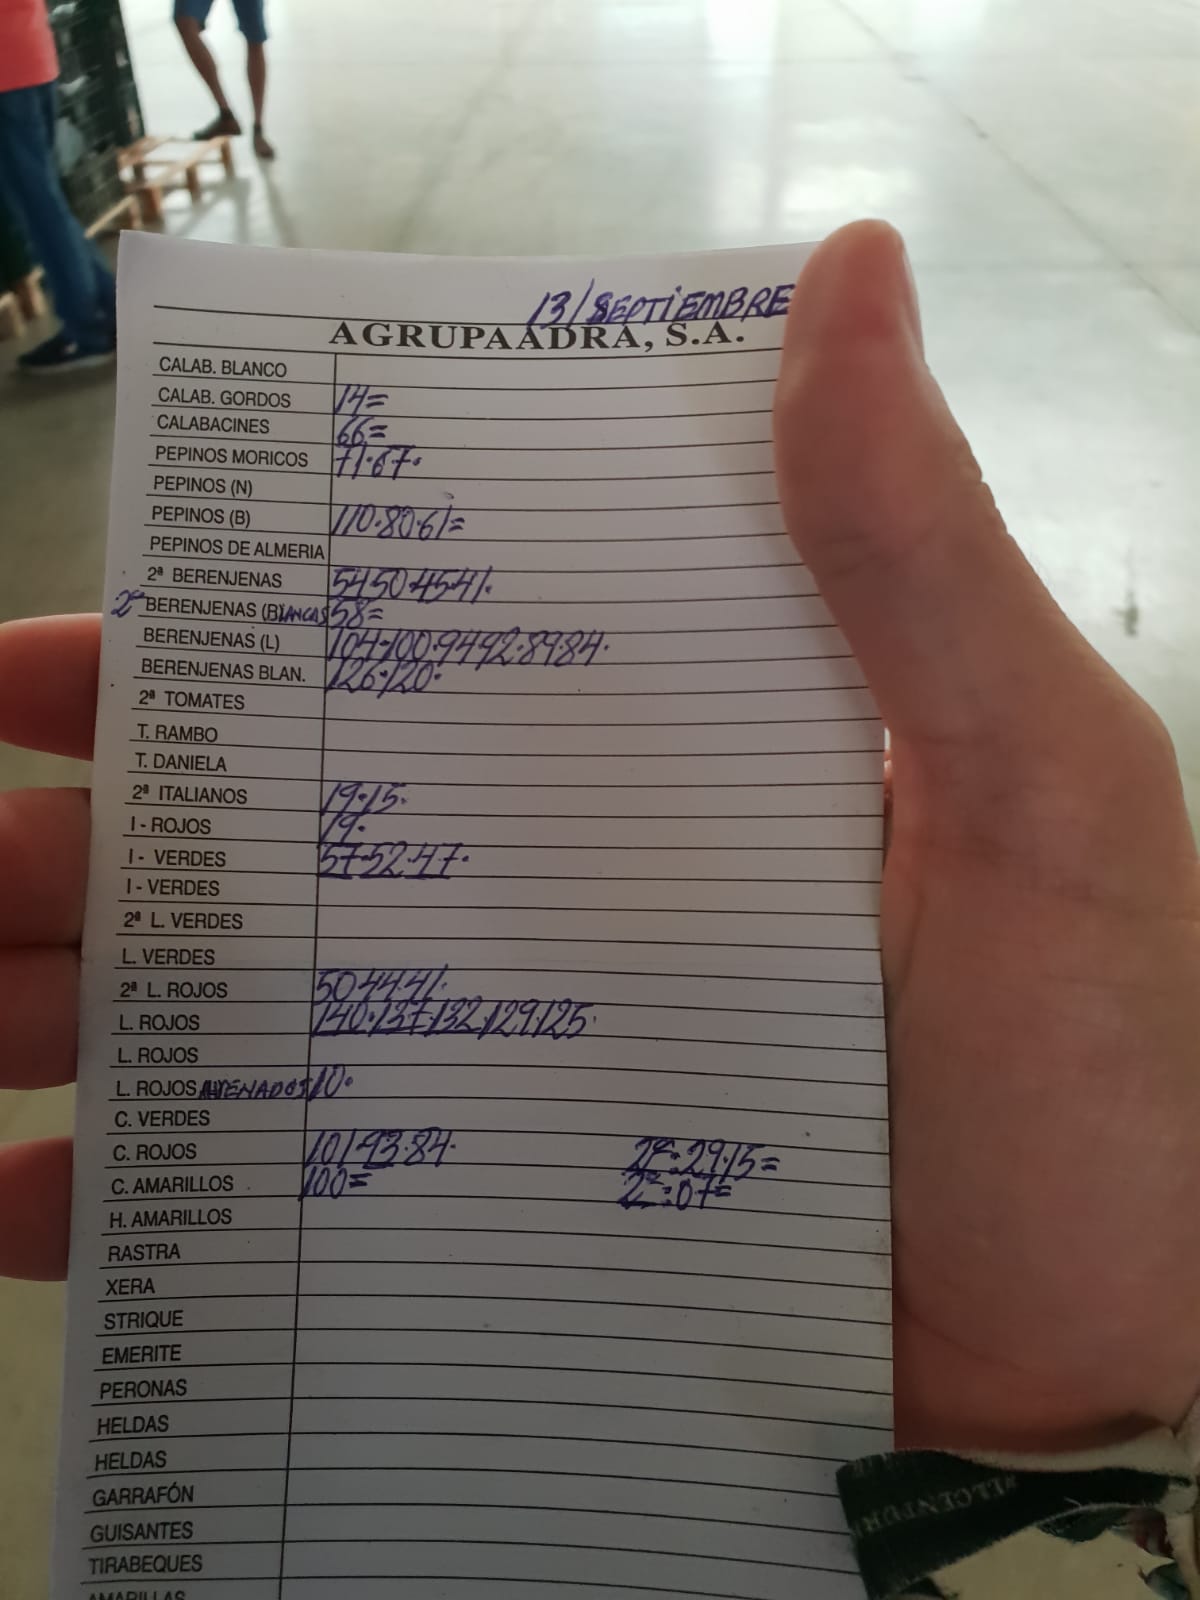 13/SEPTIEMBRE
AGRUPAADRA, S.A.
CALAB. BLANCO
CALAB. GORDOS 14=
CALABACINES 66=
PEPINOS MORICOS 71·67·
PEPINOS (N)
PEPINOS (B) 110·80·61=
PEPINOS DE ALMERIA
2ª BERENJENAS 54·50·45·41·
2ª BERENJENAS (BLANCAS 58=
BERENJENAS (L) 104·100·94·92·89·84·
BERENJENAS BLAN. 126·120·
2ª TOMATES
T. RAMBO
T. DANIELA
2ª ITALIANOS 19·15·
I - ROJOS 19·
I - VERDES 57·52·47·
I - VERDES
2ª L. VERDES
L. VERDES
2ª L. ROJOS 50·44·41·
L. ROJOS 140·137·132·129·125·
L. ROJOS
L. ROJOS 10·
C. VERDES
C. ROJOS 101·93·84· 2ª:29·15=
C. AMARILLOS 100= 2ª:07=
H. AMARILLOS
RASTRA
XERA
STRIQUE
EMERITE
PERONAS
HELDAS
HELDAS
GARRAFÓN
GUISANTES
TIRABEQUES
AMARILLAS